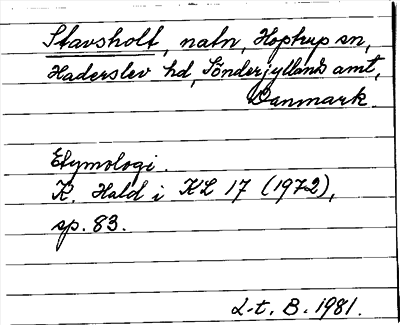 Stavsholt, natn, Hoptrup sn,
Haderslev hd, Sönderjyllands amt,
Danmark.
Etymologi.
K. Hald i KL 17 (1972),
sp. 83.
L-t. B. 1981.